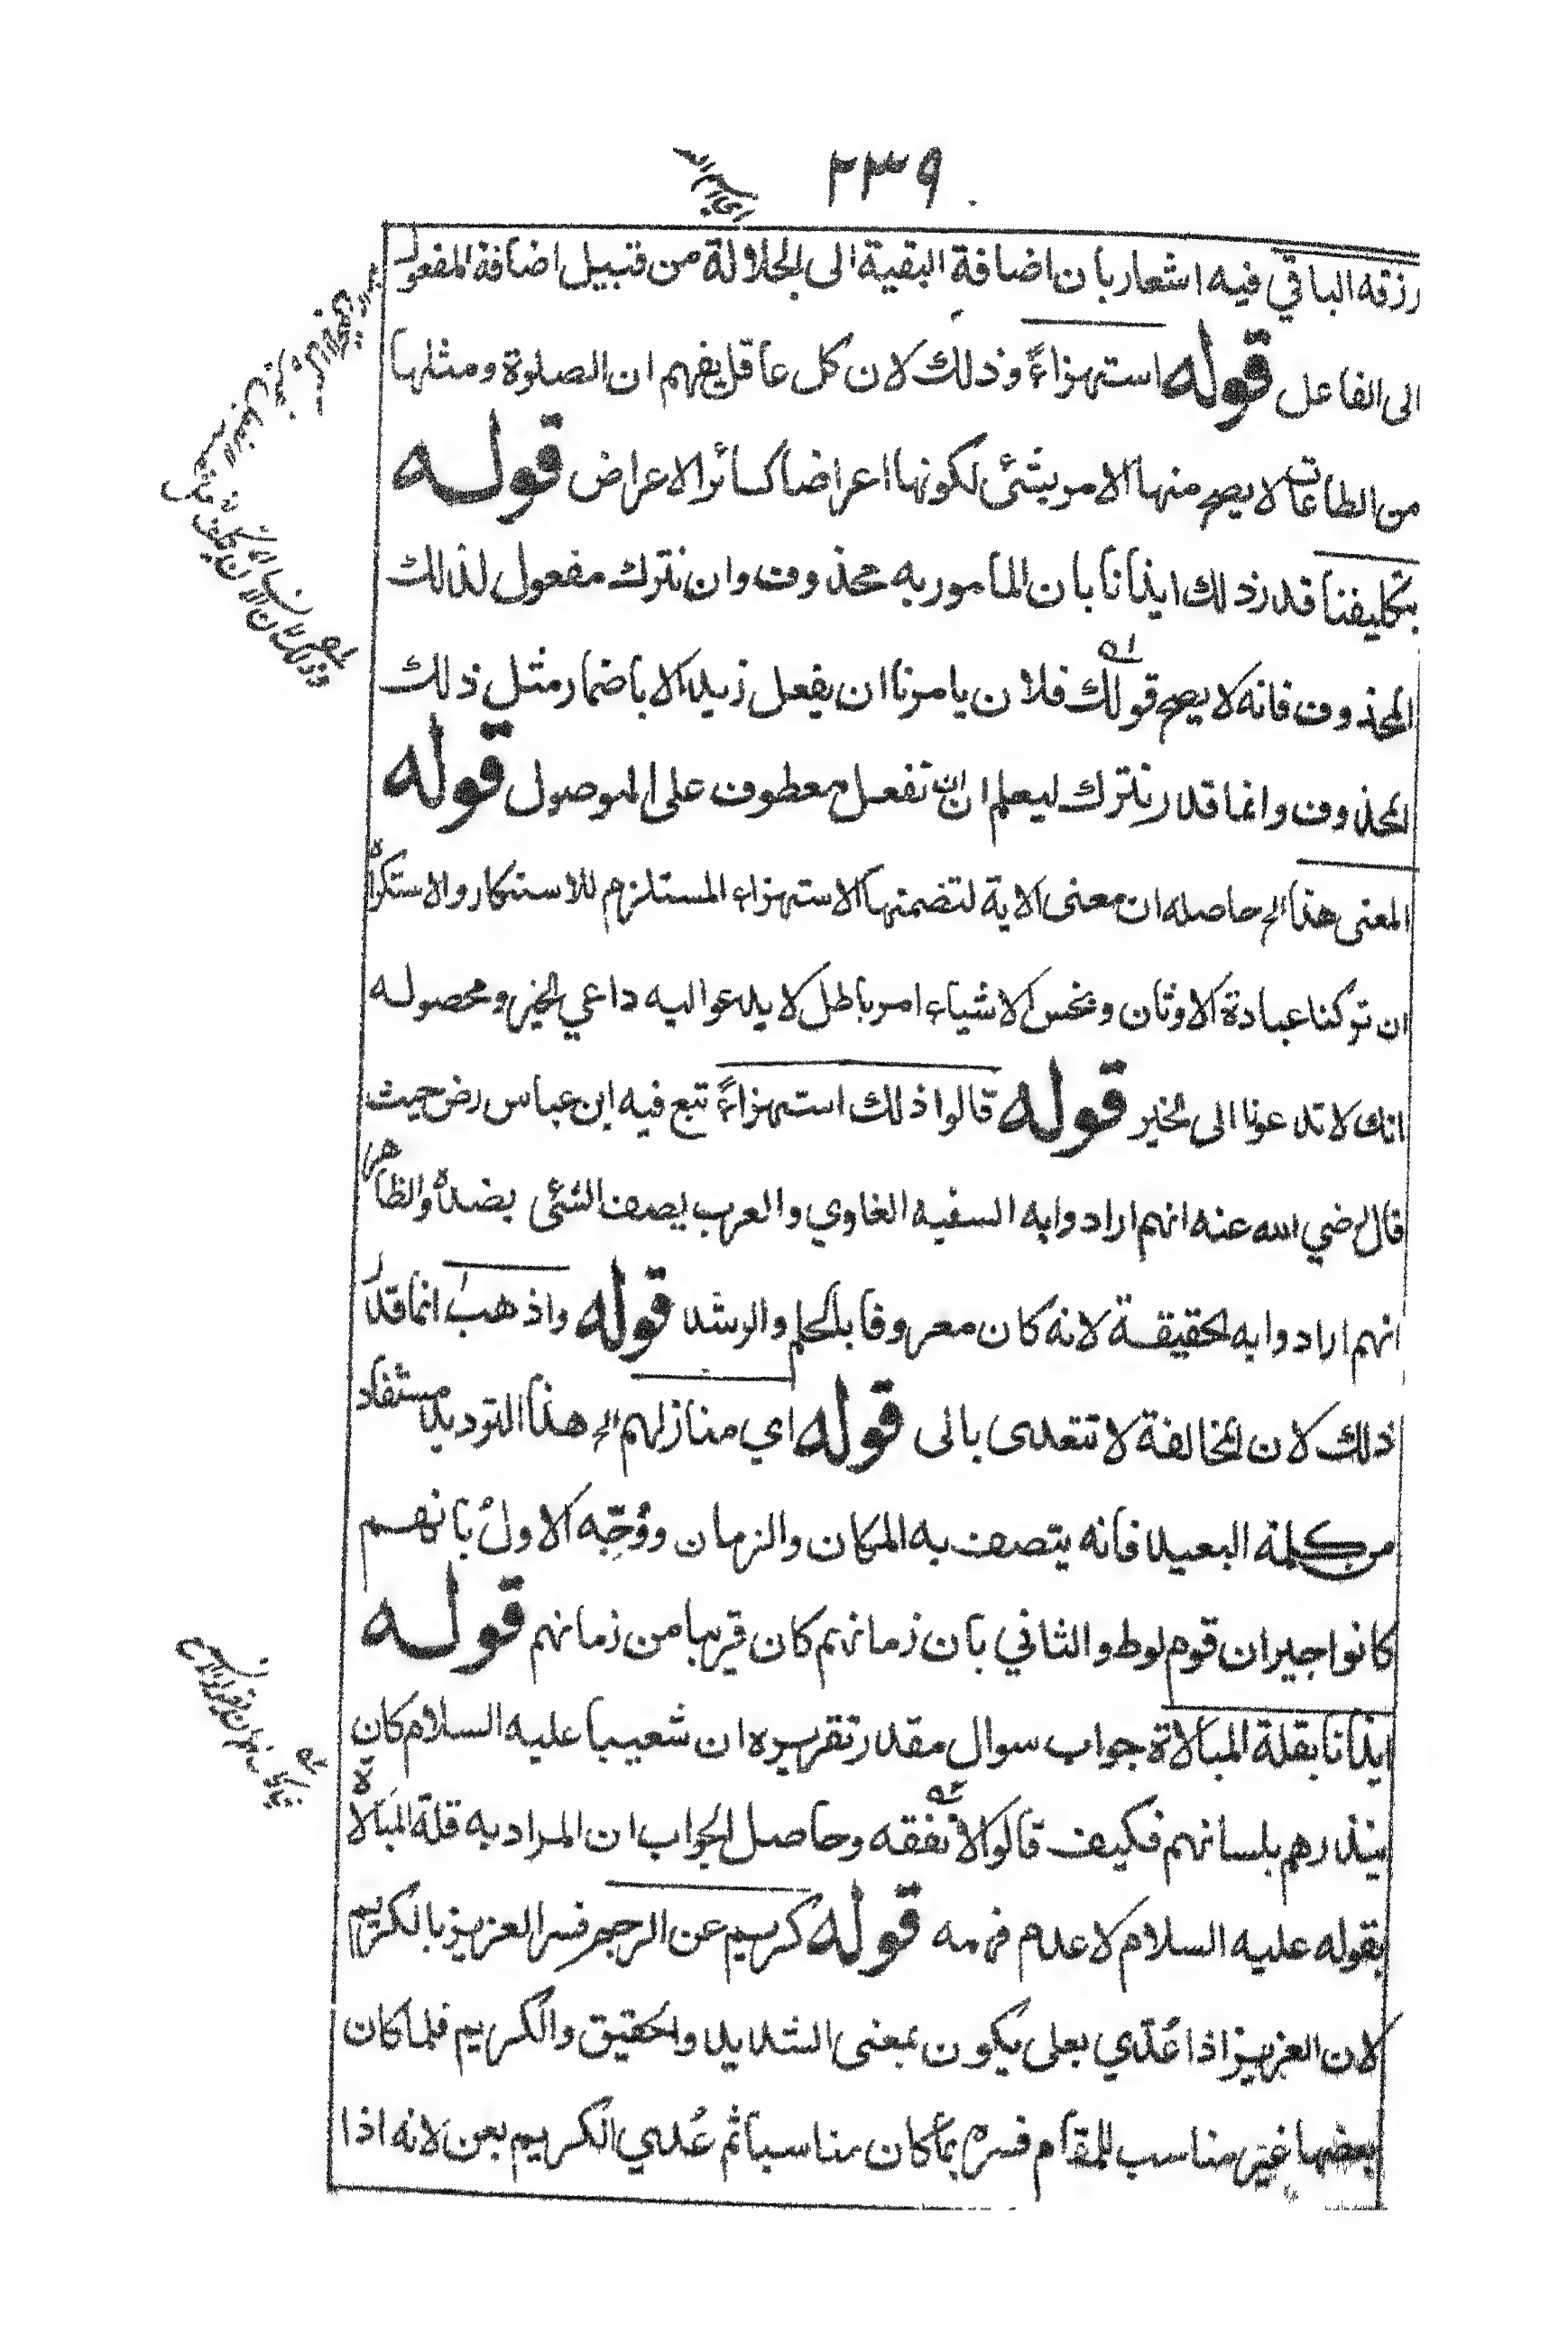 ٢٣٩
رزقه الباقي فيه اشعار بان اضافة البقية الى الجلالة من قبيل اضافة المفعول
الى الفاعل قوله استهزاءً وذلك لان كل عاقل يفهم ان الصلوة ومثلها
من الطاعات لا يصح منها الامر بشئ لكونها اعراضا كسائر الاعراض قوله
بتكليفنا قدر ذلك ايذانا بان المامور به محذوف وان نترك مفعول لذلك
المحذوف فانه لا يصح قولك فلان يامرنا ان يفعل زيد الا باضمار مثل ذلك
المحذوف وانما قدر نترك ليعلم ان ان نفعل معطوف على الموصول قوله
المعنى هذا الخ حاصله ان معنى الاية لتضمنها الاستهزاء المستلزم للاستنكار والاستكراه
ان تركنا عبادة الاوثان وبخس الاشياء امر باطل لا يدعو اليه داعي الخير ومحصوله
انك لا تدعونا الى الخير قوله قالوا ذلك استهزاءً تبع فيه ابن عباس رض حيث
قال رضي الله عنه انهم ارادوا به السفيه الغاوي والعرب يصف الشئ بضده والظاهر
انهم ارادوا به الحقيقة لانه كان معروفا بالحلم والرشد قوله واذهب انما قدر
ذلك لان المخالفة لا تتعدى بالى قوله اي منازلهم الخ هذا الترديد مستفاد
من كلمة البعيد فانه يتصف به المكان والزمان ووُجّه الاول بانهم
كانوا جيران قوم لوط والثاني بان زمانهم كان قريبا من زمانهم قوله
ايذانا بقلة المبالاة جواب سوال مقدر تقريره ان شعيبا عليه السلام كان
ينذرهم بلسانهم فكيف قالوا لا نفقه وحاصل الجواب ان المراد به قلة المبالاة
بقوله عليه السلام لا عدم فهمه قوله كريم عن الرجم فسر العزيز بالكريم
لان العزيز اذا عُدّي بعلى يكون بمعنى الشديد والحقيق والكريم فلما كان
بعضها غير مناسب للمقام فسره بما كان مناسبا ثم عُدي الكريم بعن لانه اذا